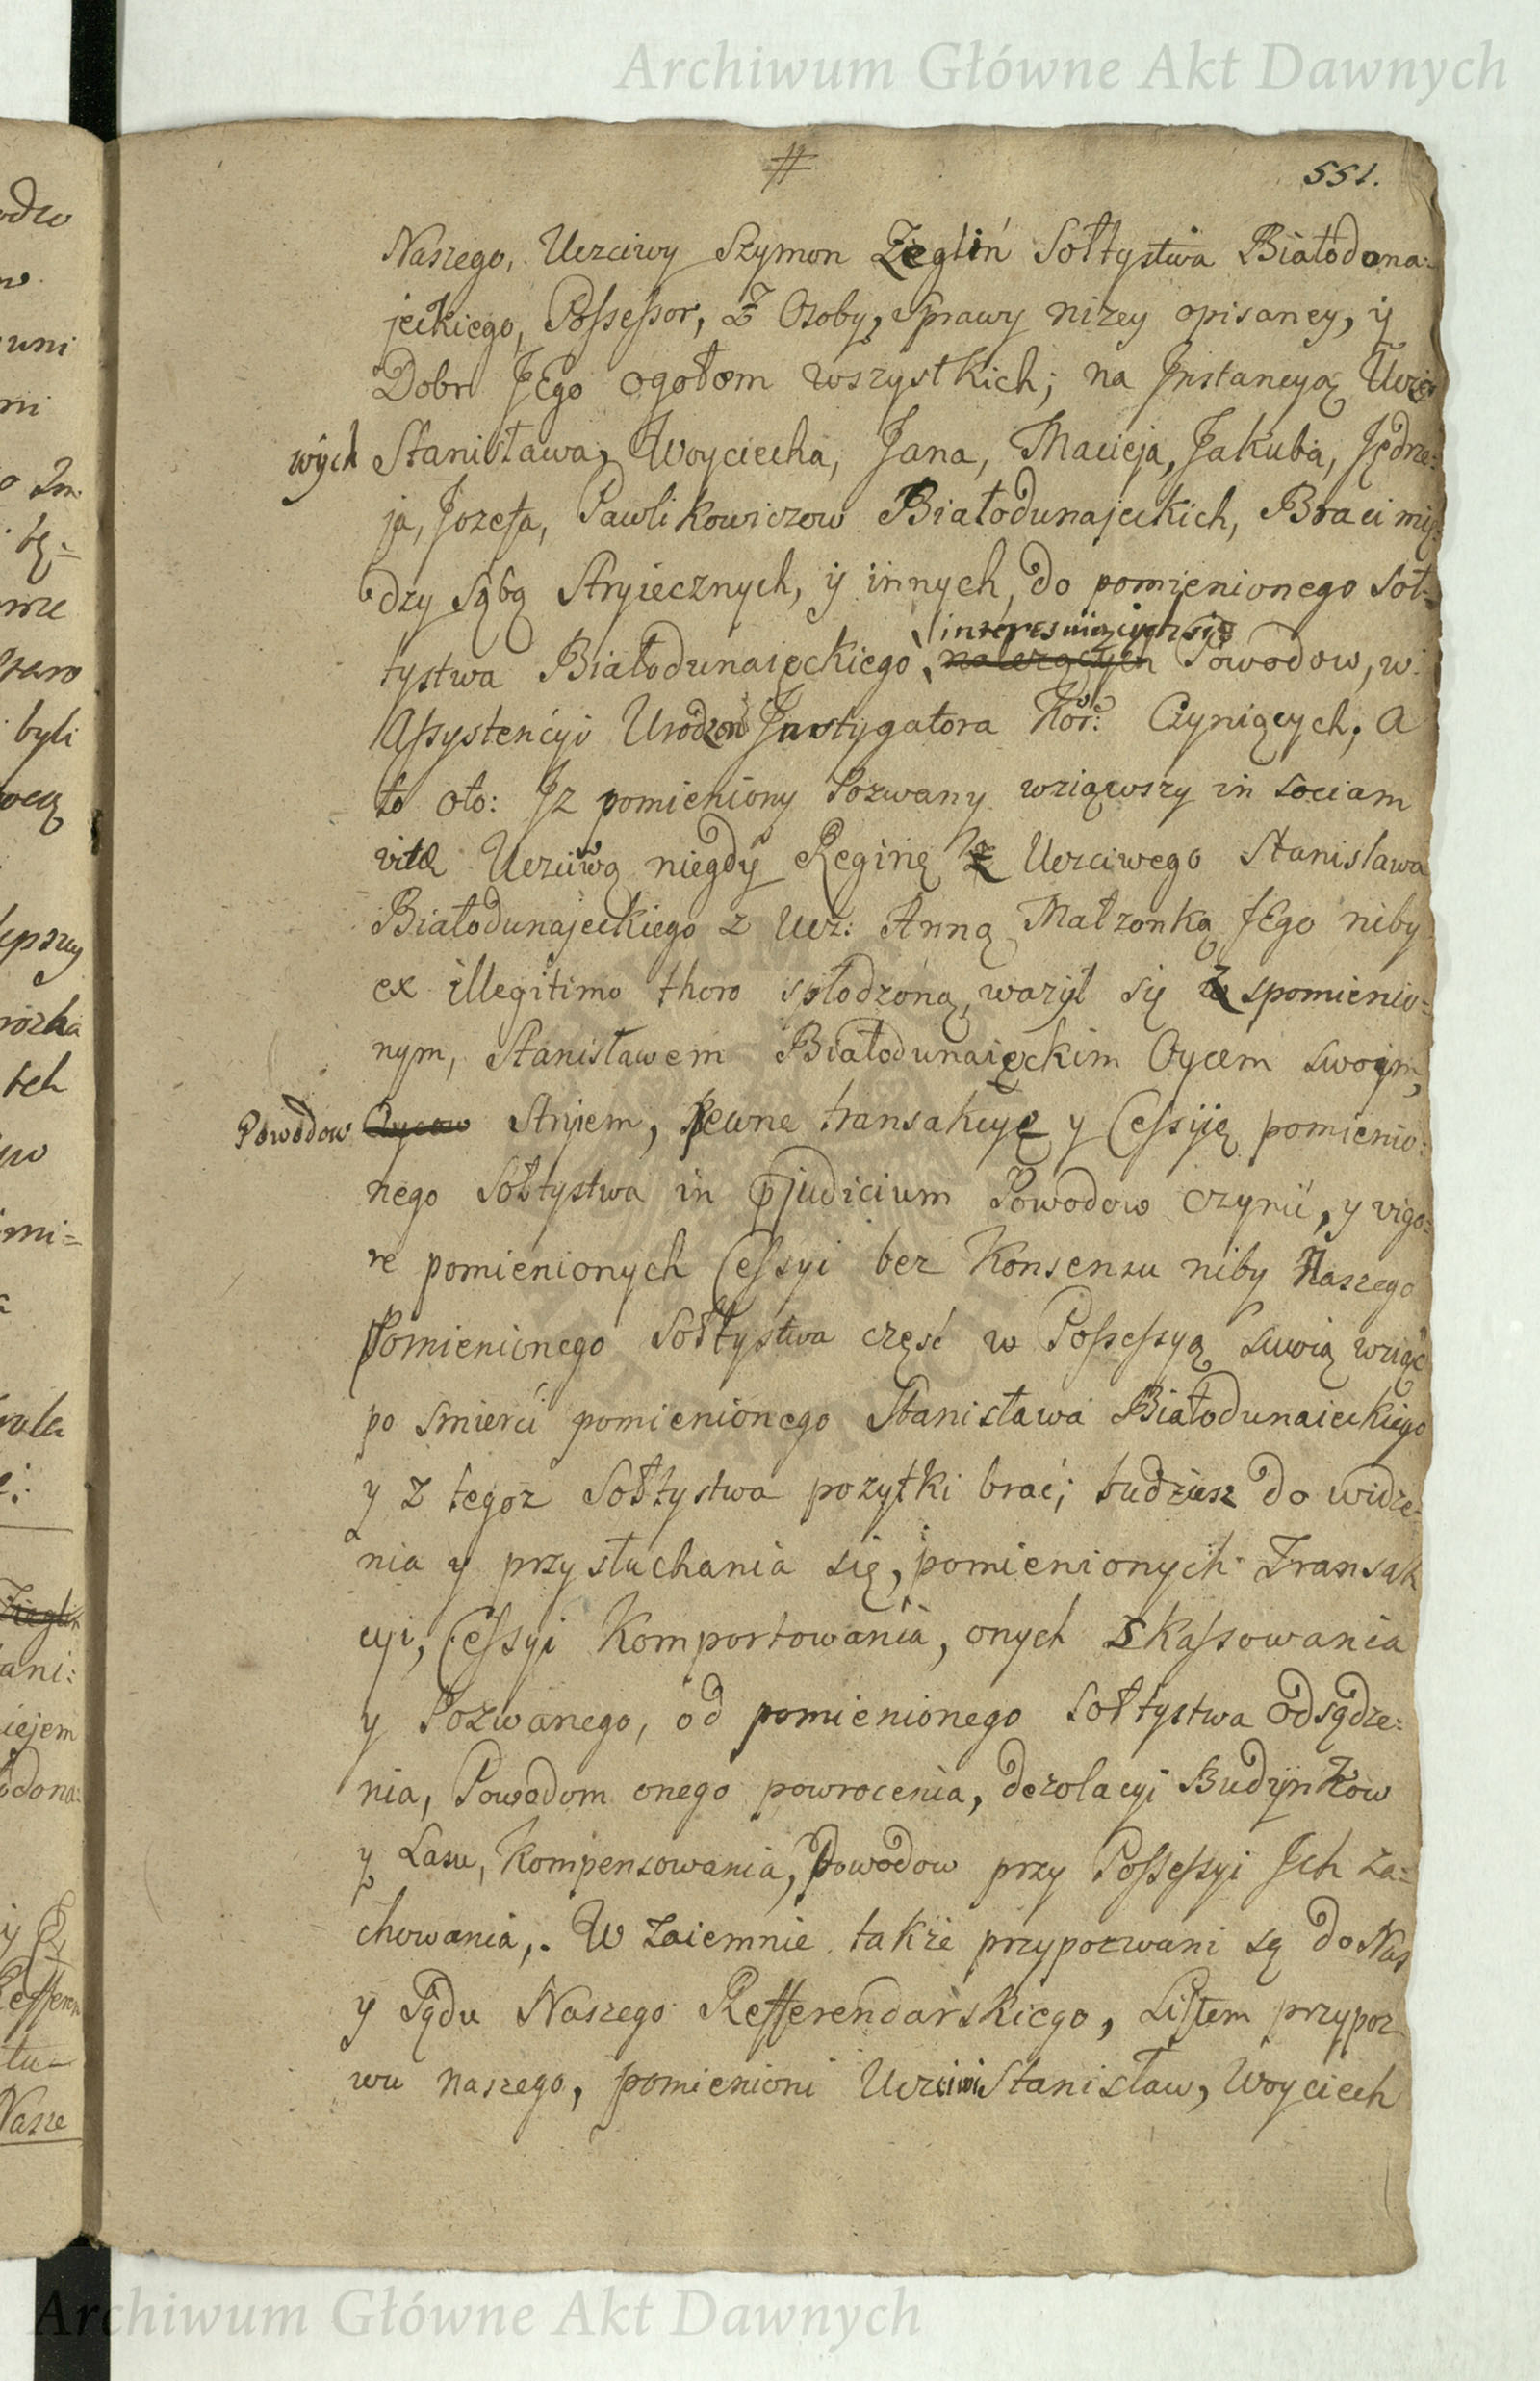 Archiwum Główne Akt Dawnych
#
551.
Naszego, Uczciwy Szymon Zięgliń Sołtystwa Białodona:
jeckiego, Possessor, Z Osoby, Sprawy nizey opisaney, ÿ
Dobr JEgo ogołem wszystkich; na Jnstancyą Uczci
wych Stanisława, Woyciecha, Jana, Macieja, Jakuba, Jędrze:
ja, Jozefa, Pawlikowiczow Białodunajeckich, Braci mię:
dzy sobą Stryiecznych, ÿ innych, do pomienionego Soł:
interesuiących się
tystwa Białodunaieckiego, należących Powodow, w
Assystencyi Urodzon Jnstygatora Kor: Czyniących, a
to oto: Jz pomieniony Pozwany wziąwszy in sociam
vitæ Uczciwą niegdy Reginę z Uczciwego Stanisława
Białodunajeckiego z Ucz: Anną Małzonką JEgo niby
ex illegitimo thoro spłodzoną, ważył się z spomienio:
nym, Stanisławem Białodunaieckim Oycem swoim,
Powodow Oycow Stryiem, pewne transakcye y Cessyię pomienio:
nego Sołtystwa in pjudicium Powodow czynić, y vigo:
re pomienionych Cessyi bez Konsensu niby Naszego
Pomienionego Sołtystwa część w Possessyą swoią wziąć
po smierci pomienionego Stanisława Białodunaieckiego
y z tegoz Sołtystwa pozytki brać; tudziesz do widze:
nia y przysłuchania się, pomienionych Transak
cyi, Cessyi Komportowania, onych Skassowania
y Pozwanego, od pomienionego Sołtystwa odsądze:
nia, Powodom onego powrocenia, dezolacyi Budynkow
y Lasu, Kompensowania, Powodow przy Possessyi Jch za:
chowania,. W zaiemnie także przypozwani są do Nas
y Sądu Naszego Refferendarskiego, Listem przypoz
wu naszego, pomienioni Uczciwi Stanisław, Woyciech
Archiwum Główne Akt Dawnych